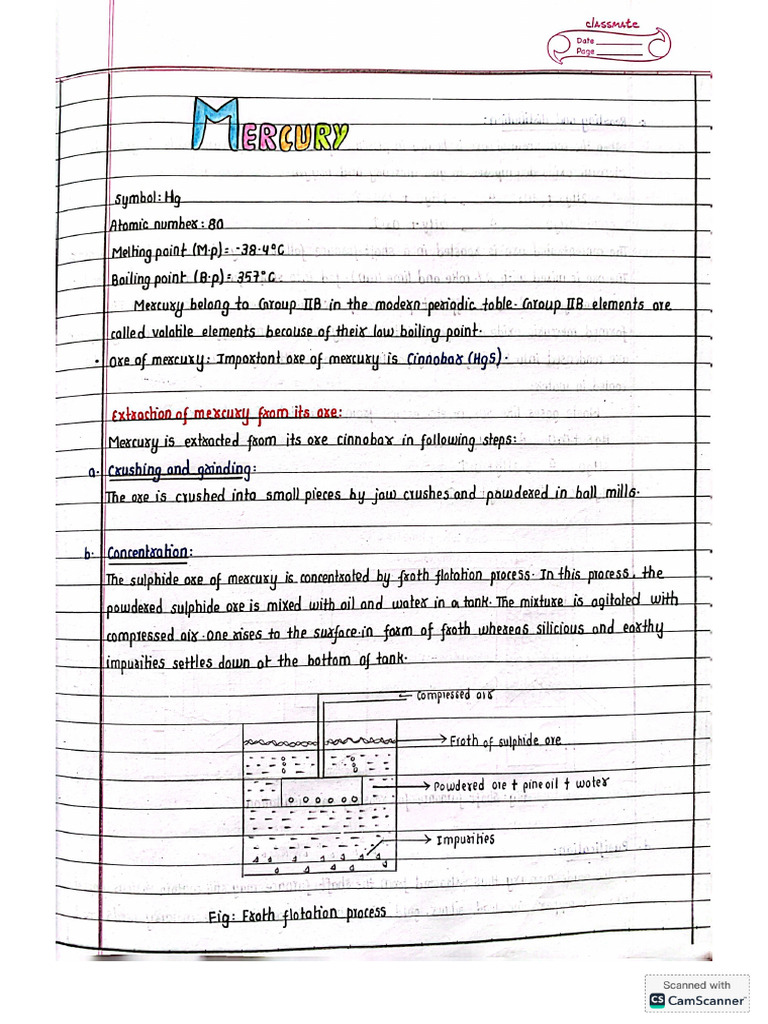 classmate
Date
Page
MERCURY
Symbol: Hg
Atomic number: 80
Melting point (M.p) = -38.4°C
Boiling point (B.p) = 357°C
Mercury belong to Group IIB in the modern periodic table. Group IIB elements are
called volatile elements because of their low boiling point.
• Ore of mercury: Important ore of mercury is Cinnobar (HgS).
Extraction of mercury from its ore:
Mercury is extracted from its ore cinnobar in following steps:
a. Crushing and grinding:
The ore is crushed into small pieces by jaw crushes and powdered in ball mills.
b. Concentration:
The sulphide ore of mercury is concentrated by froth flotation process. In this process, the
powdered sulphide ore is mixed with oil and water in a tank. The mixture is agitated with
compressed air. One rises to the surface in form of froth whereas silicious and earthy
impurities settles down at the bottom of tank.
compressed air
Froth of sulphide ore
Powdered ore + pine oil + water
Impurities
Fig: Froth flotation process
Scanned with
CS CamScanner